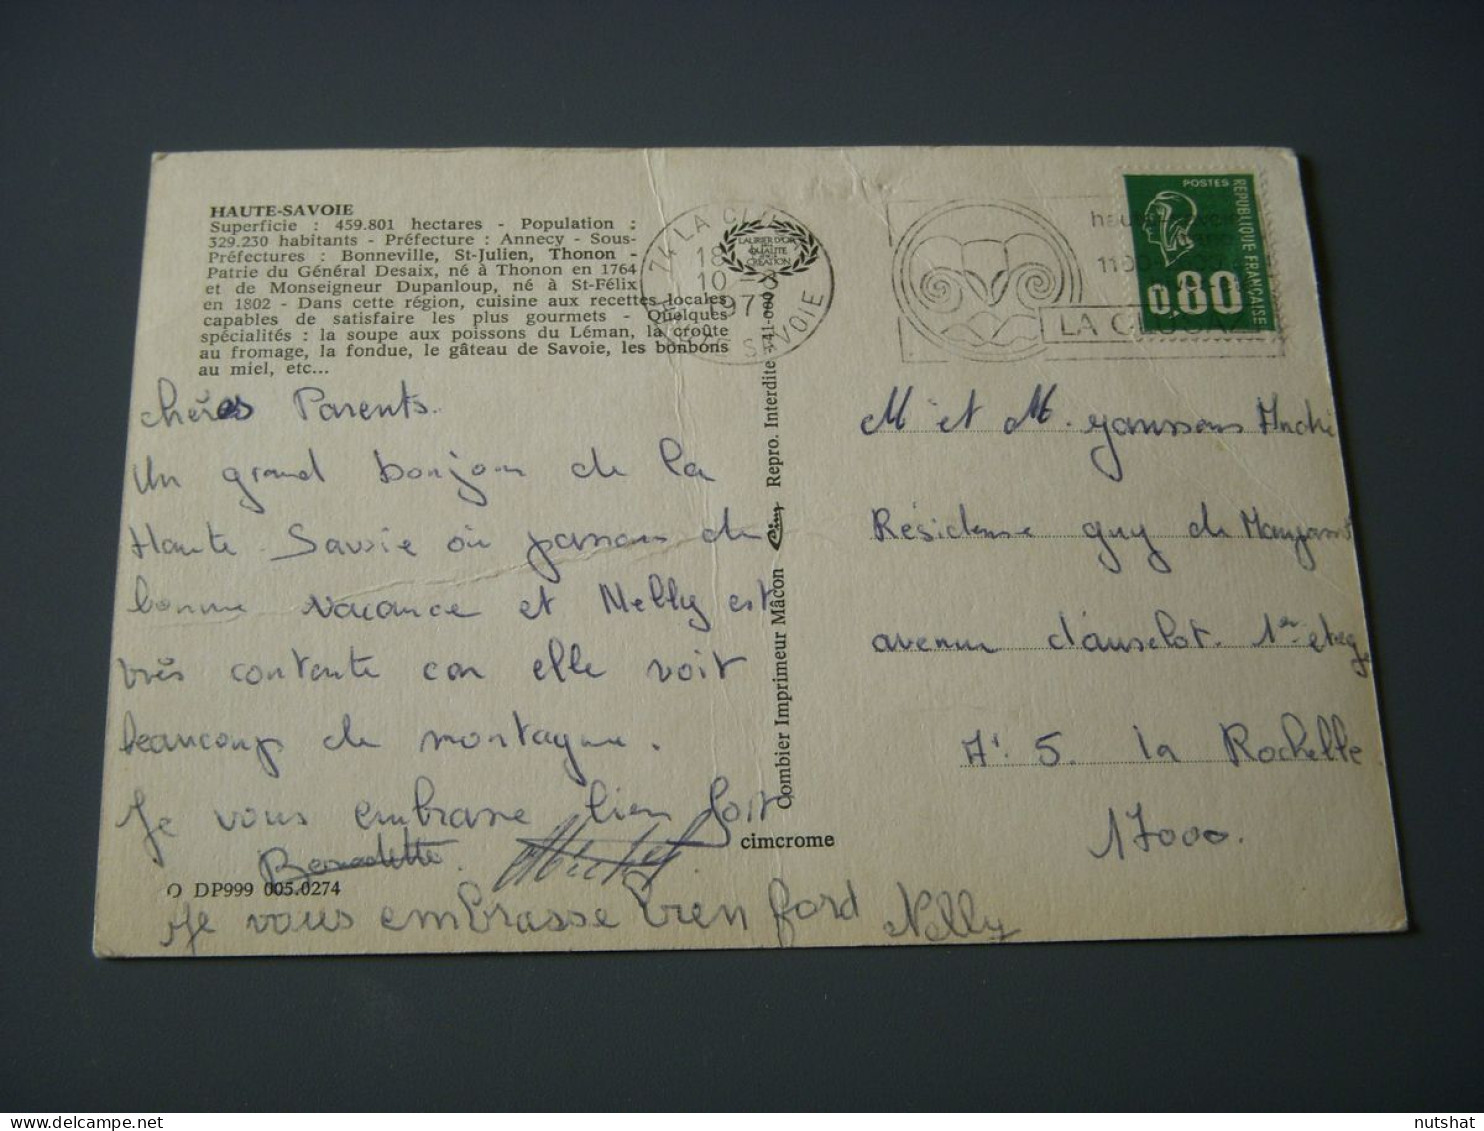 HAUTE-SAVOIE
Superficie : 459.801 hectares - Population :
329.230 habitants - Préfecture : Annecy - Sous-
Préfectures : Bonneville, St-Julien, Thonon -
Patrie du Général Desaix, né à Thonon en 1764
et de Monseigneur Dupanloup, né à St-Félix
en 1802 - Dans cette région, cuisine aux recettes locales
capables de satisfaire les plus gourmets - Quelques
spécialités : la soupe aux poissons du Léman, la croûte
au fromage, la fondue, le gâteau de Savoie, les bonbons
au miel, etc...
chères Parents.
Un grand bonjour de la
Haute Savoie où passons de
bonne vacance et Nelly est
très contente car elle voit
beaucoup de montagne.
Je vous embrasse bien fort
Bernadette. Michel
DP999 005.0274
Je vous embrasse bien ford Nelly
cimcrome
Combier Imprimeur Mâcon Cim Repro. Interdite 341-009
LAURIER D'OR
QUALITÉ
CRÉATION
74 LA
18
10 - 8
197
SAVOIE
haute savoie
1100
LA CLUSAZ
POSTES
0,80
REPUBLIQUE FRANÇAISE
M et M. André
Résidense guy de
avenue 1er etage
A' 5. la Rochelle
17000.
nutshat